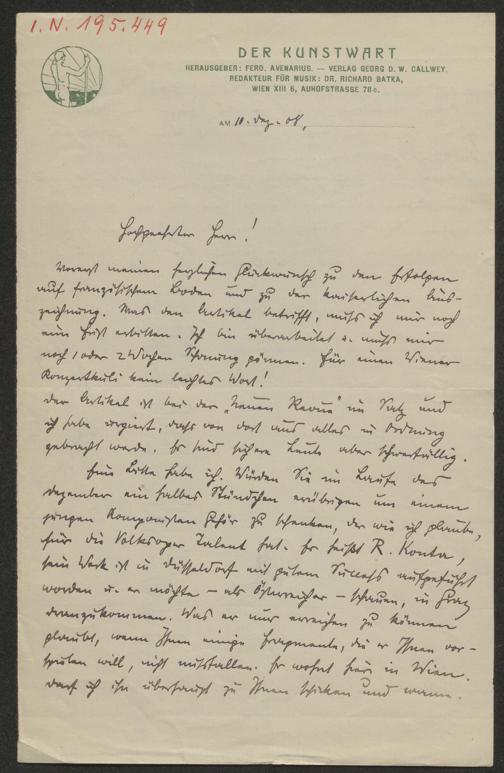 I.N. 195.449
DER KUNSTWART
HERAUSGEBER: FERD. AVENARIUS. — VERLAG GEORG D. W. CALLWEY.
REDAKTEUR FÜR MUSIK: DR. RICHARD BATKA,
WIEN XIII 6, AUHOFSTRASSE 78c.
AM 10. Dez. 08,
Hochgeehrter Herr!
Vorerst meinen herzlichen Glückwunsch zu den Erfolgen
auf französischem Boden und zu der kaiserlichen Aus-
zeichnung. Was den Artikel betrifft, muß ich mir noch
eine Frist erbitten. Ich bin überarbeitet u. muß mir
noch 1 oder 2 Wochen Schonung gönnen. Für einen Wiener
Konzertkuli kein leichtes Wort!
Der Artikel ist bei der "Neuen Revue" im Satz und
ich habe urgiert, dass von dort aus alles in Ordnung
gebracht werde. Es sind sichere Leute aber schwerfällig.
Eine Bitte habe ich. Würden Sie im Laufe des
Dezember ein halbes Stündchen erübrigen um einem
jungen Komponisten Gehör zu schenken, der wie ich glaube,
für die Volksoper Talent hat. Er heißt R. Konta,
sein Werk ist in Düsseldorf mit gutem Success aufgeführt
worden u. er möchte – als Österreicher – schauen, in Graz
dranzukommen. Was er nur erreichen zu können
glaubt, wenn Ihnen einige Fragmente, die er Ihnen vor-
spielen will, nicht missfallen. Er wohnt hier in Wien.
Darf ich ihn überhaupt zu Ihnen schicken und wann.